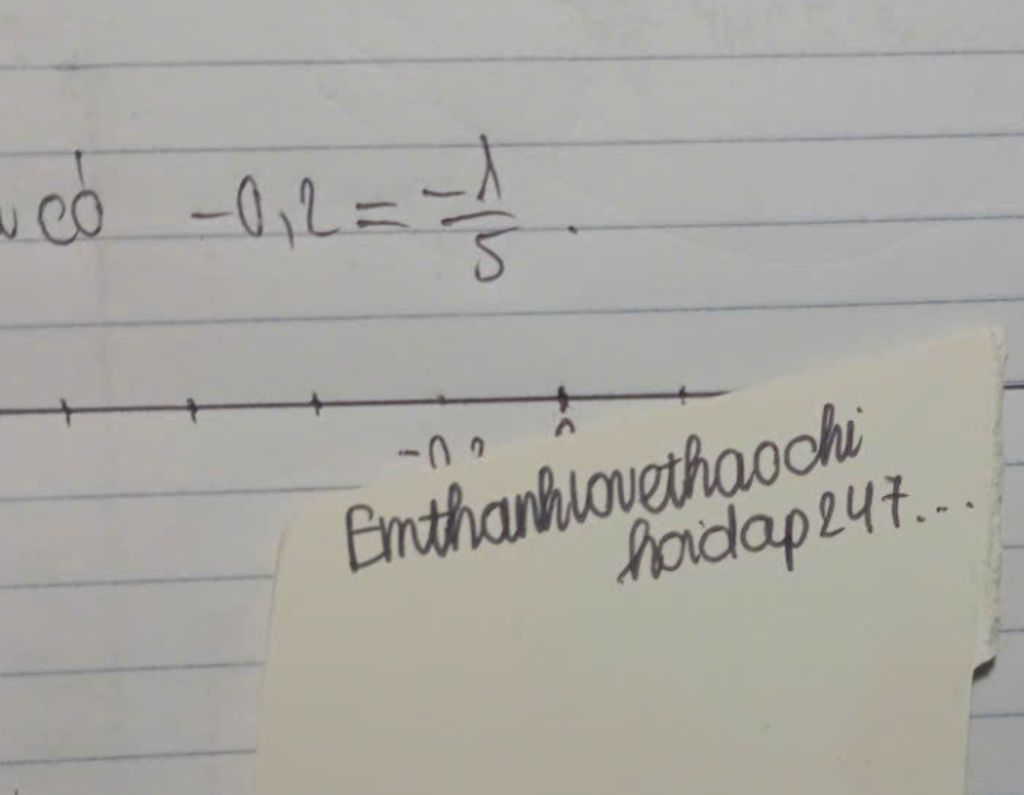 có -0,2 = -1/5 .
0
Emthanhlovethaochi
hoidap247...